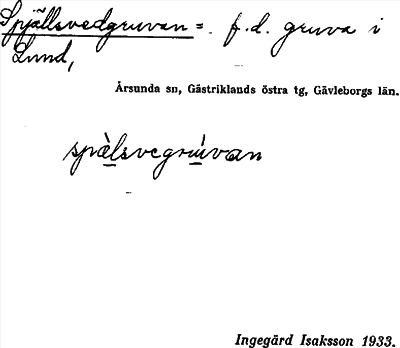 Spjällsvedgruvan = f.d. gruva i
Lund,
Årsunda sn, Gästriklands östra tg, Gävleborgs län.
spä̀lsvegrúvan
Ingegärd Isaksson 1933.